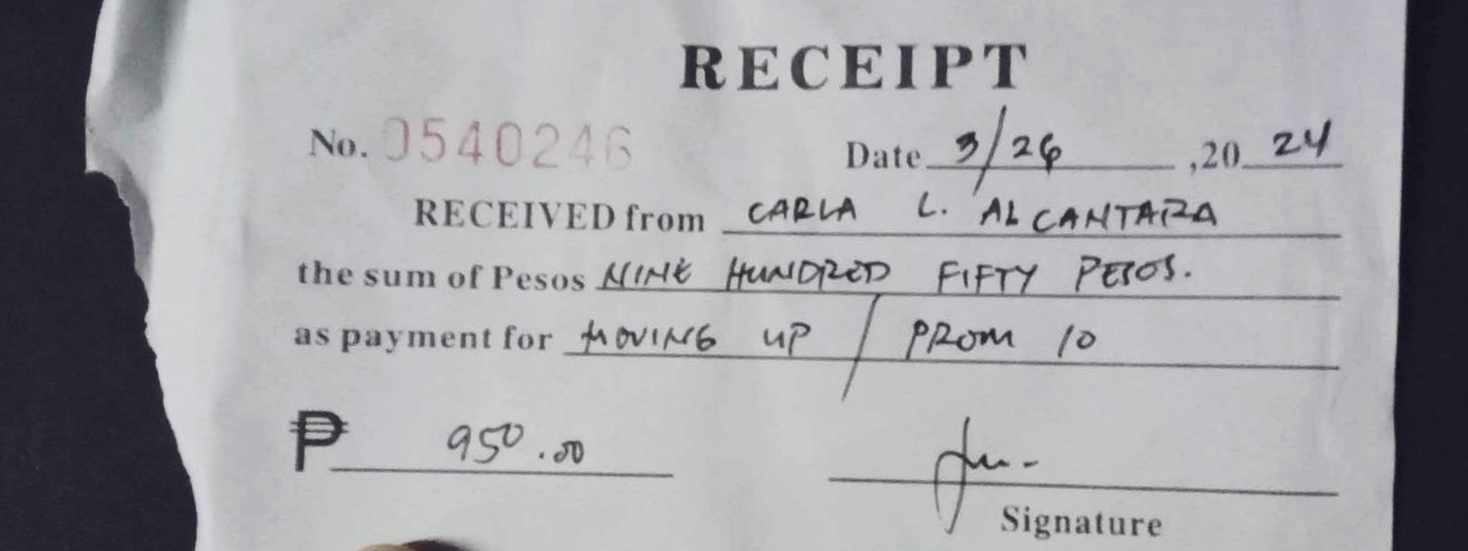 RECEIPT
No. 0540246 Date 3/26, 20 24
RECEIVED from CARLA L. ALCANTARA
the sum of Pesos NINE HUNDRED FIFTY PESOS.
as payment for MOVING UP / PROM 10
₱ 950.00
Signature